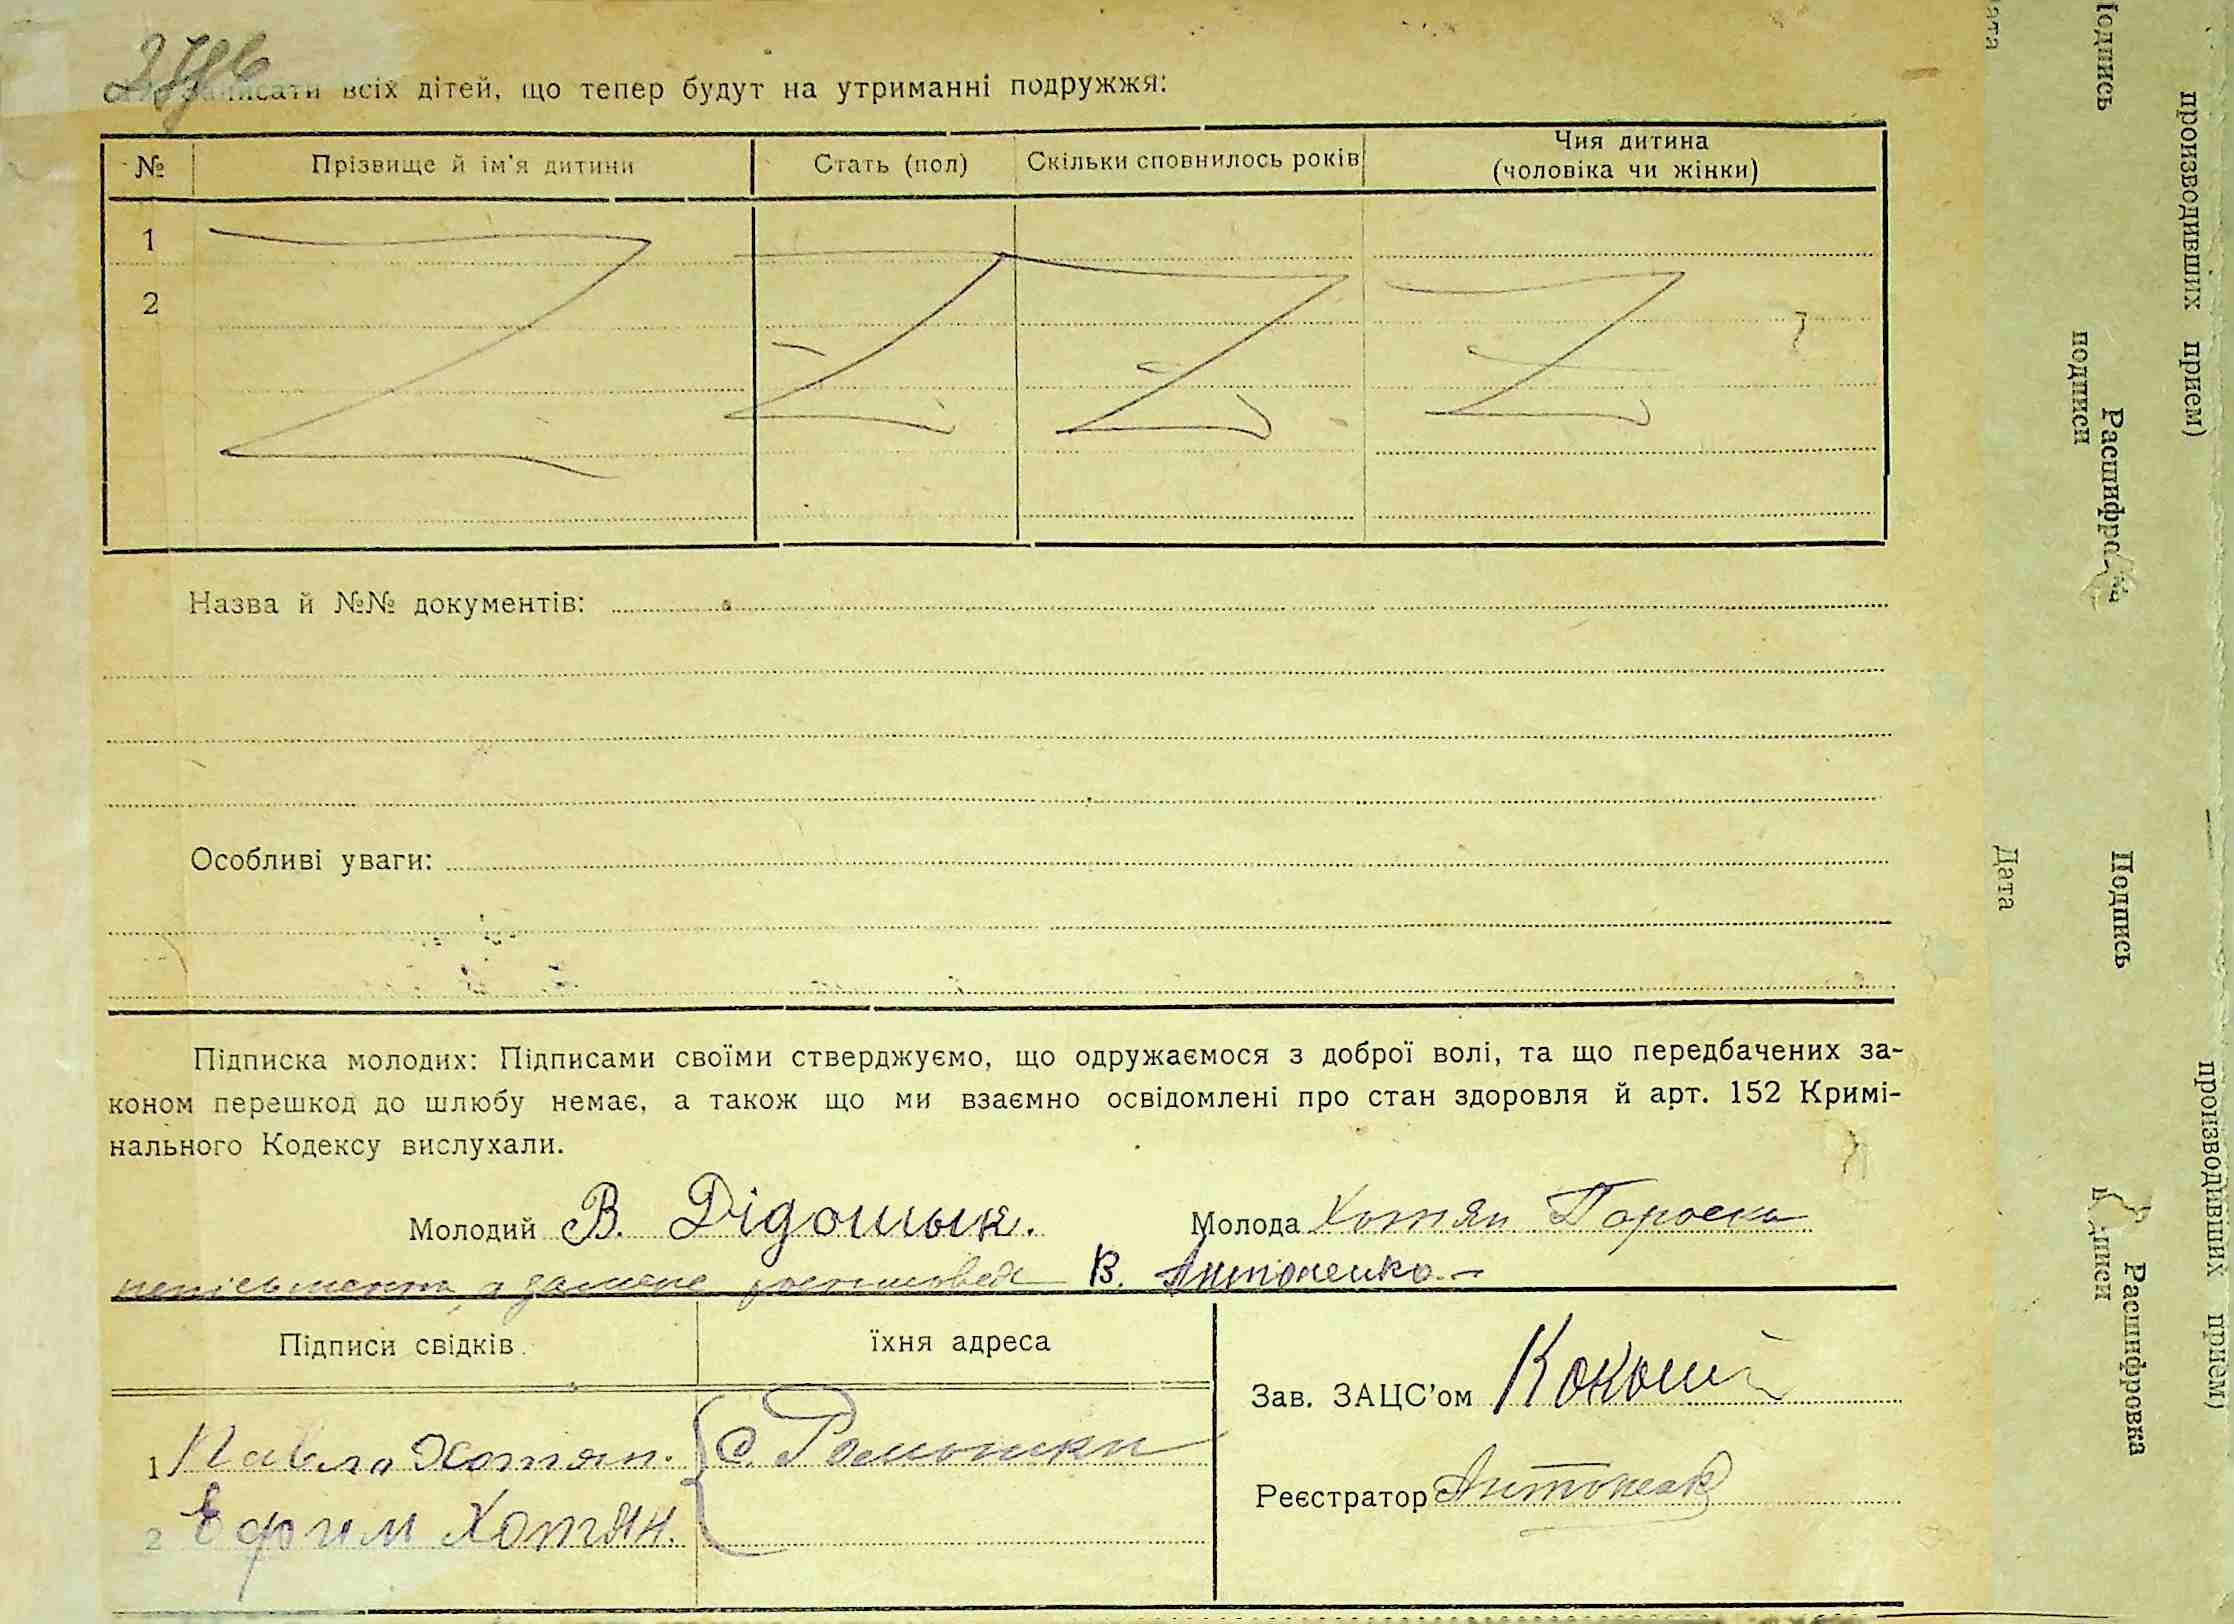 записати всіх дітей, що тепер будут на утриманні подружжя:
№ Прізвище й ім'я дитини Стать (пол) Скільки сповнилось років Чия дитина (чоловіка чи жінки)
1
2
Назва й №№ документів:
Особливі уваги:
Підписка молодих: Підписами своїми стверджуємо, що одружаємося з доброї волі, та що передбачених за-
коном перешкод до шлюбу немає, а також що ми взаємно освідомлені про стан здоровля й арт. 152 Кримі-
нального Кодексу вислухали.
Молодий В. Дідошык. Молода Хотян
В. Антоненко
Підписи свідків їхня адреса
Зав. ЗАЦС'ом Кокош
1 Павло Хотян. с. Ромашки
Реєстратор Антоненко
2 Ефим Хотян.
Дата
Подпись
Расшифровка
подписи
производивших прием)
Дата
Подпись
Расшифровка
подписи
производивших прием)